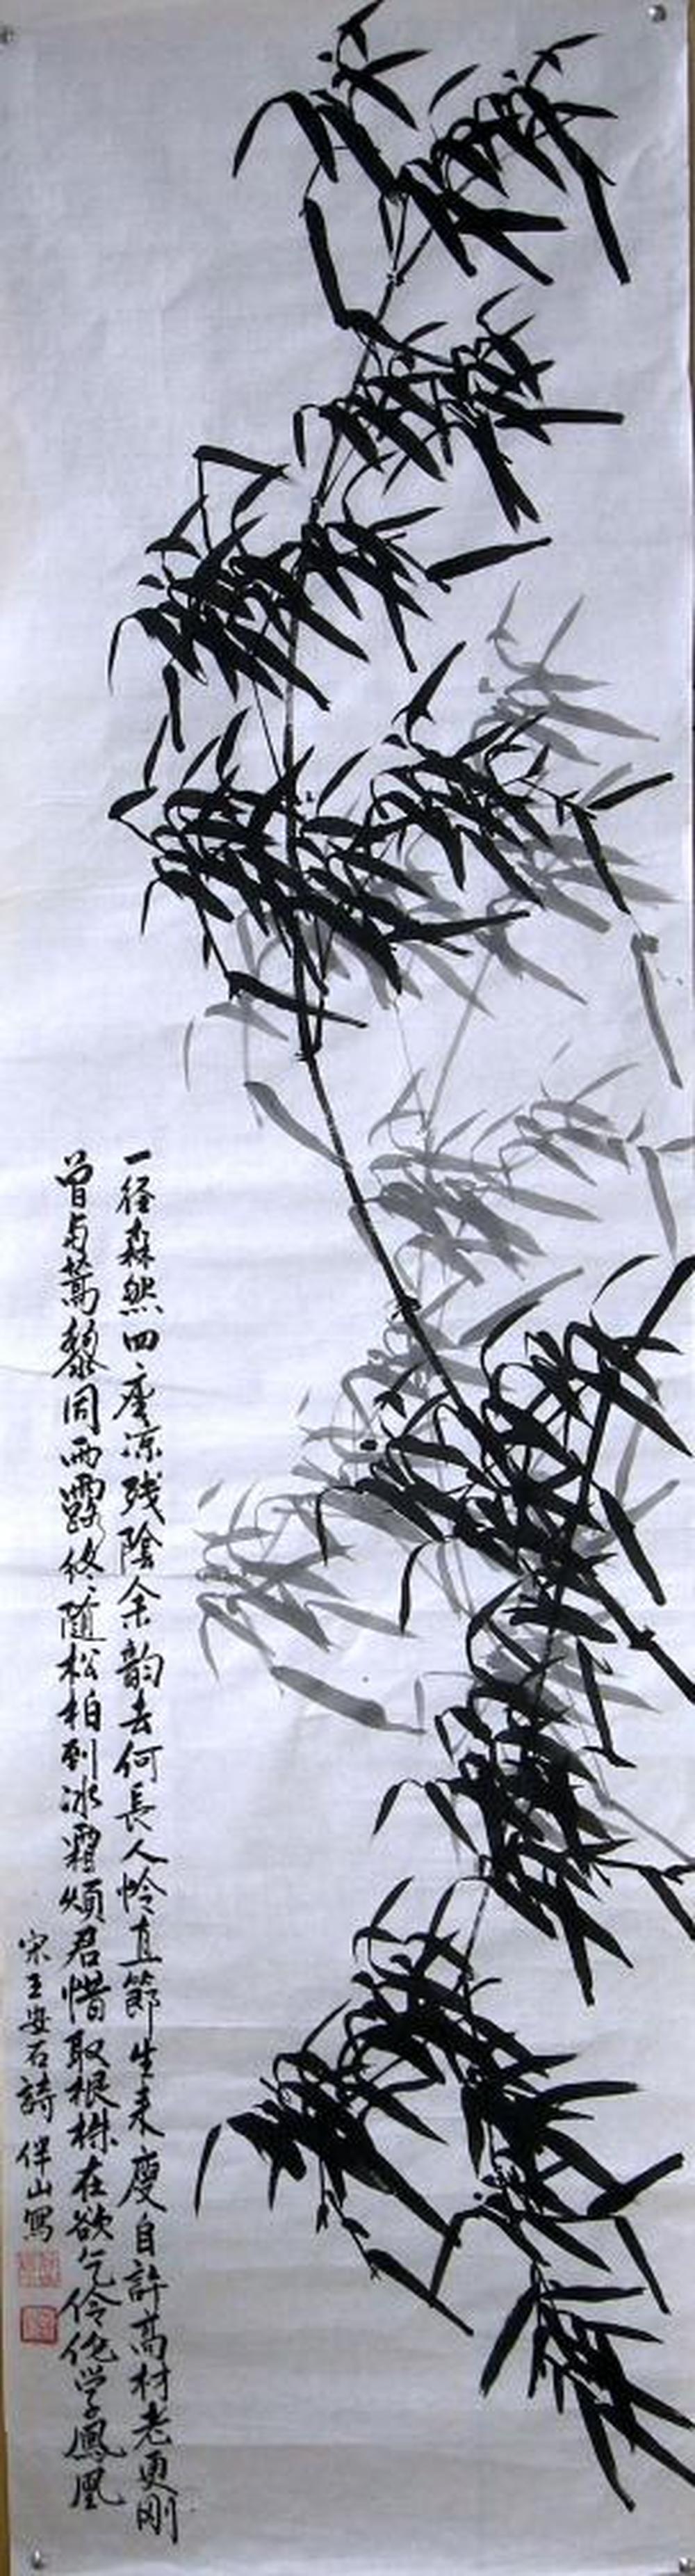 一径森然四座凉残陰余韵去何長人怜直節生来瘦自許高材老更刚
曾与蒿藜同雨露终随松柏到冰霜烦君惜取根株在欲乞伶伦学鳳凰
宋王安石詩伴山写